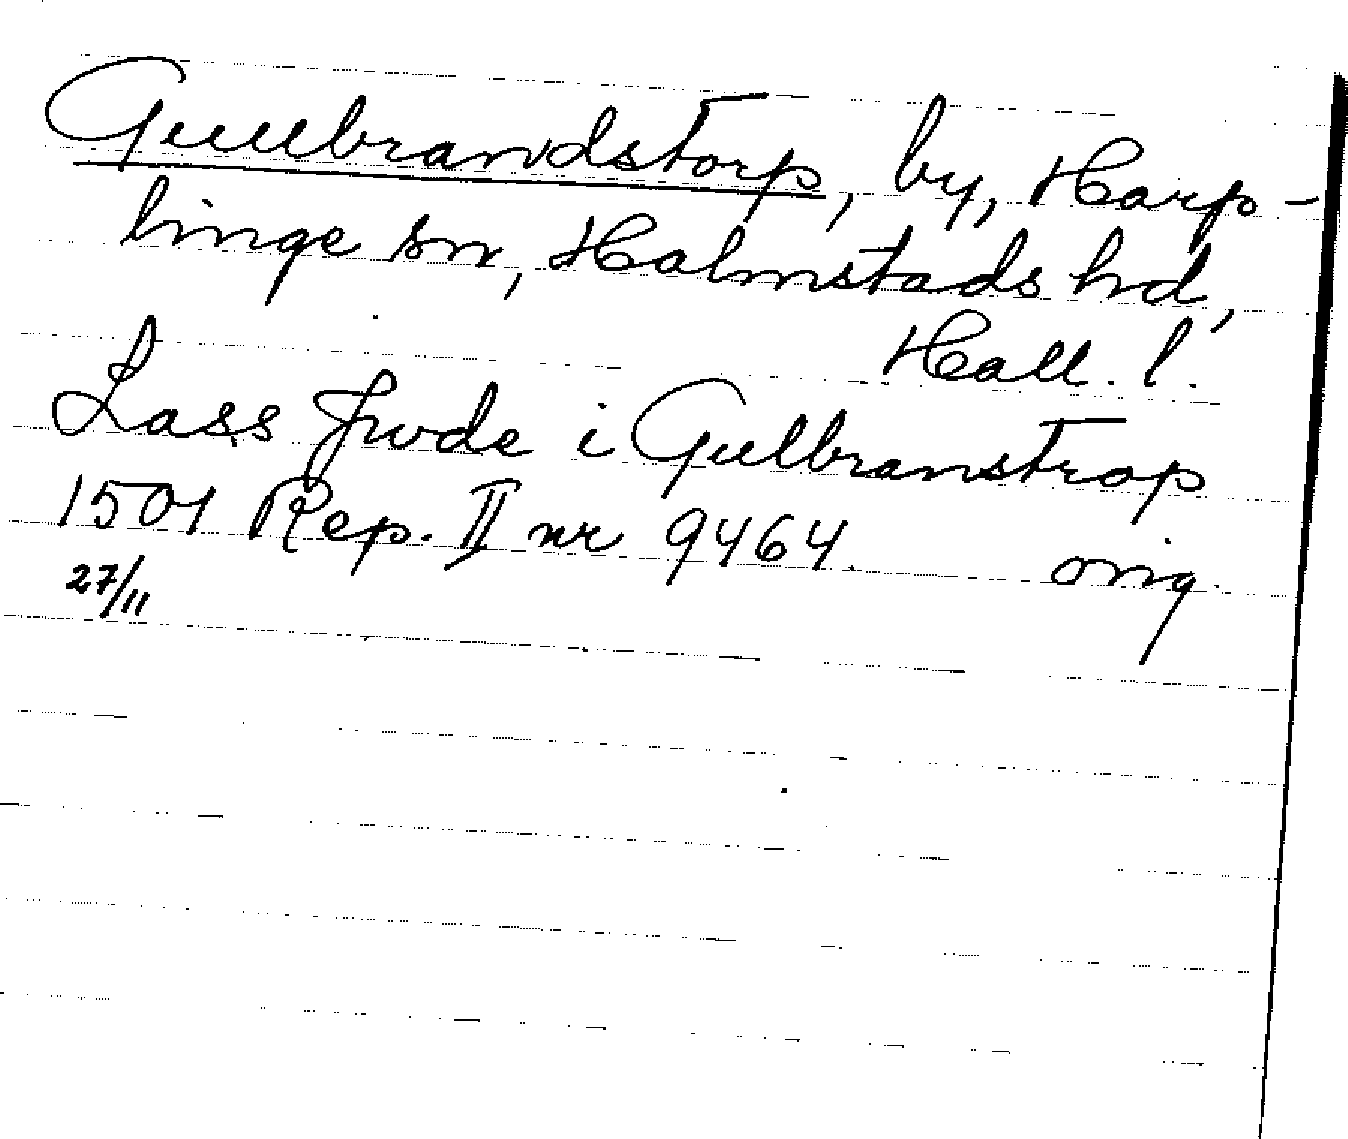 Gullbrandstorp, by, Harp-
linge sn, Halmstads hd,
Hall. l.
Lass Jwde i Gulbranstrop
1501 Rep. II nr 9464. orig.
27/11